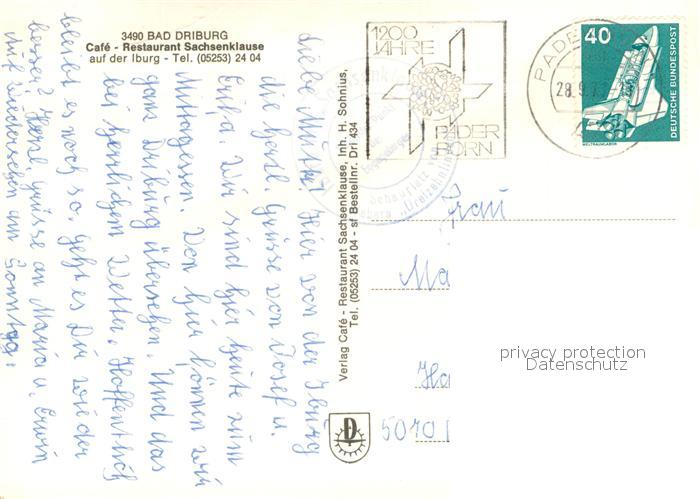 3490 BAD DRIBURG
Café - Restaurant Sachsenklause
auf der Iburg - Tel. (05253) 24 04
Liebe Mutter! Hier von der Iburg
die herzl. Grüsse von Josef u.
Erika. Wir sind hier heute zum
Mittagessen. Von hier können wir
ganz Driburg übersehen. Und das
bei herrlichem Wetter. Hoffentlich
bleibt es noch so. geht es Dir wieder
besser? Herzl. Grüsse an Maria u. Erwin
Auf Wiedersehen am Sonntag.
Verlag Café - Restaurant Sachsenklause, Inh. H. Sohnius,
Tel. (05253) 24 04 - sf Bestellnr. Dri 434
1200
JAHRE
PADER
BORN
PADE
28.9.7
40
DEUTSCHE BUNDESPOST
WELTRAUMLABOR
Frau
Ma
Ha
5070
privacy protection
Datenschutz